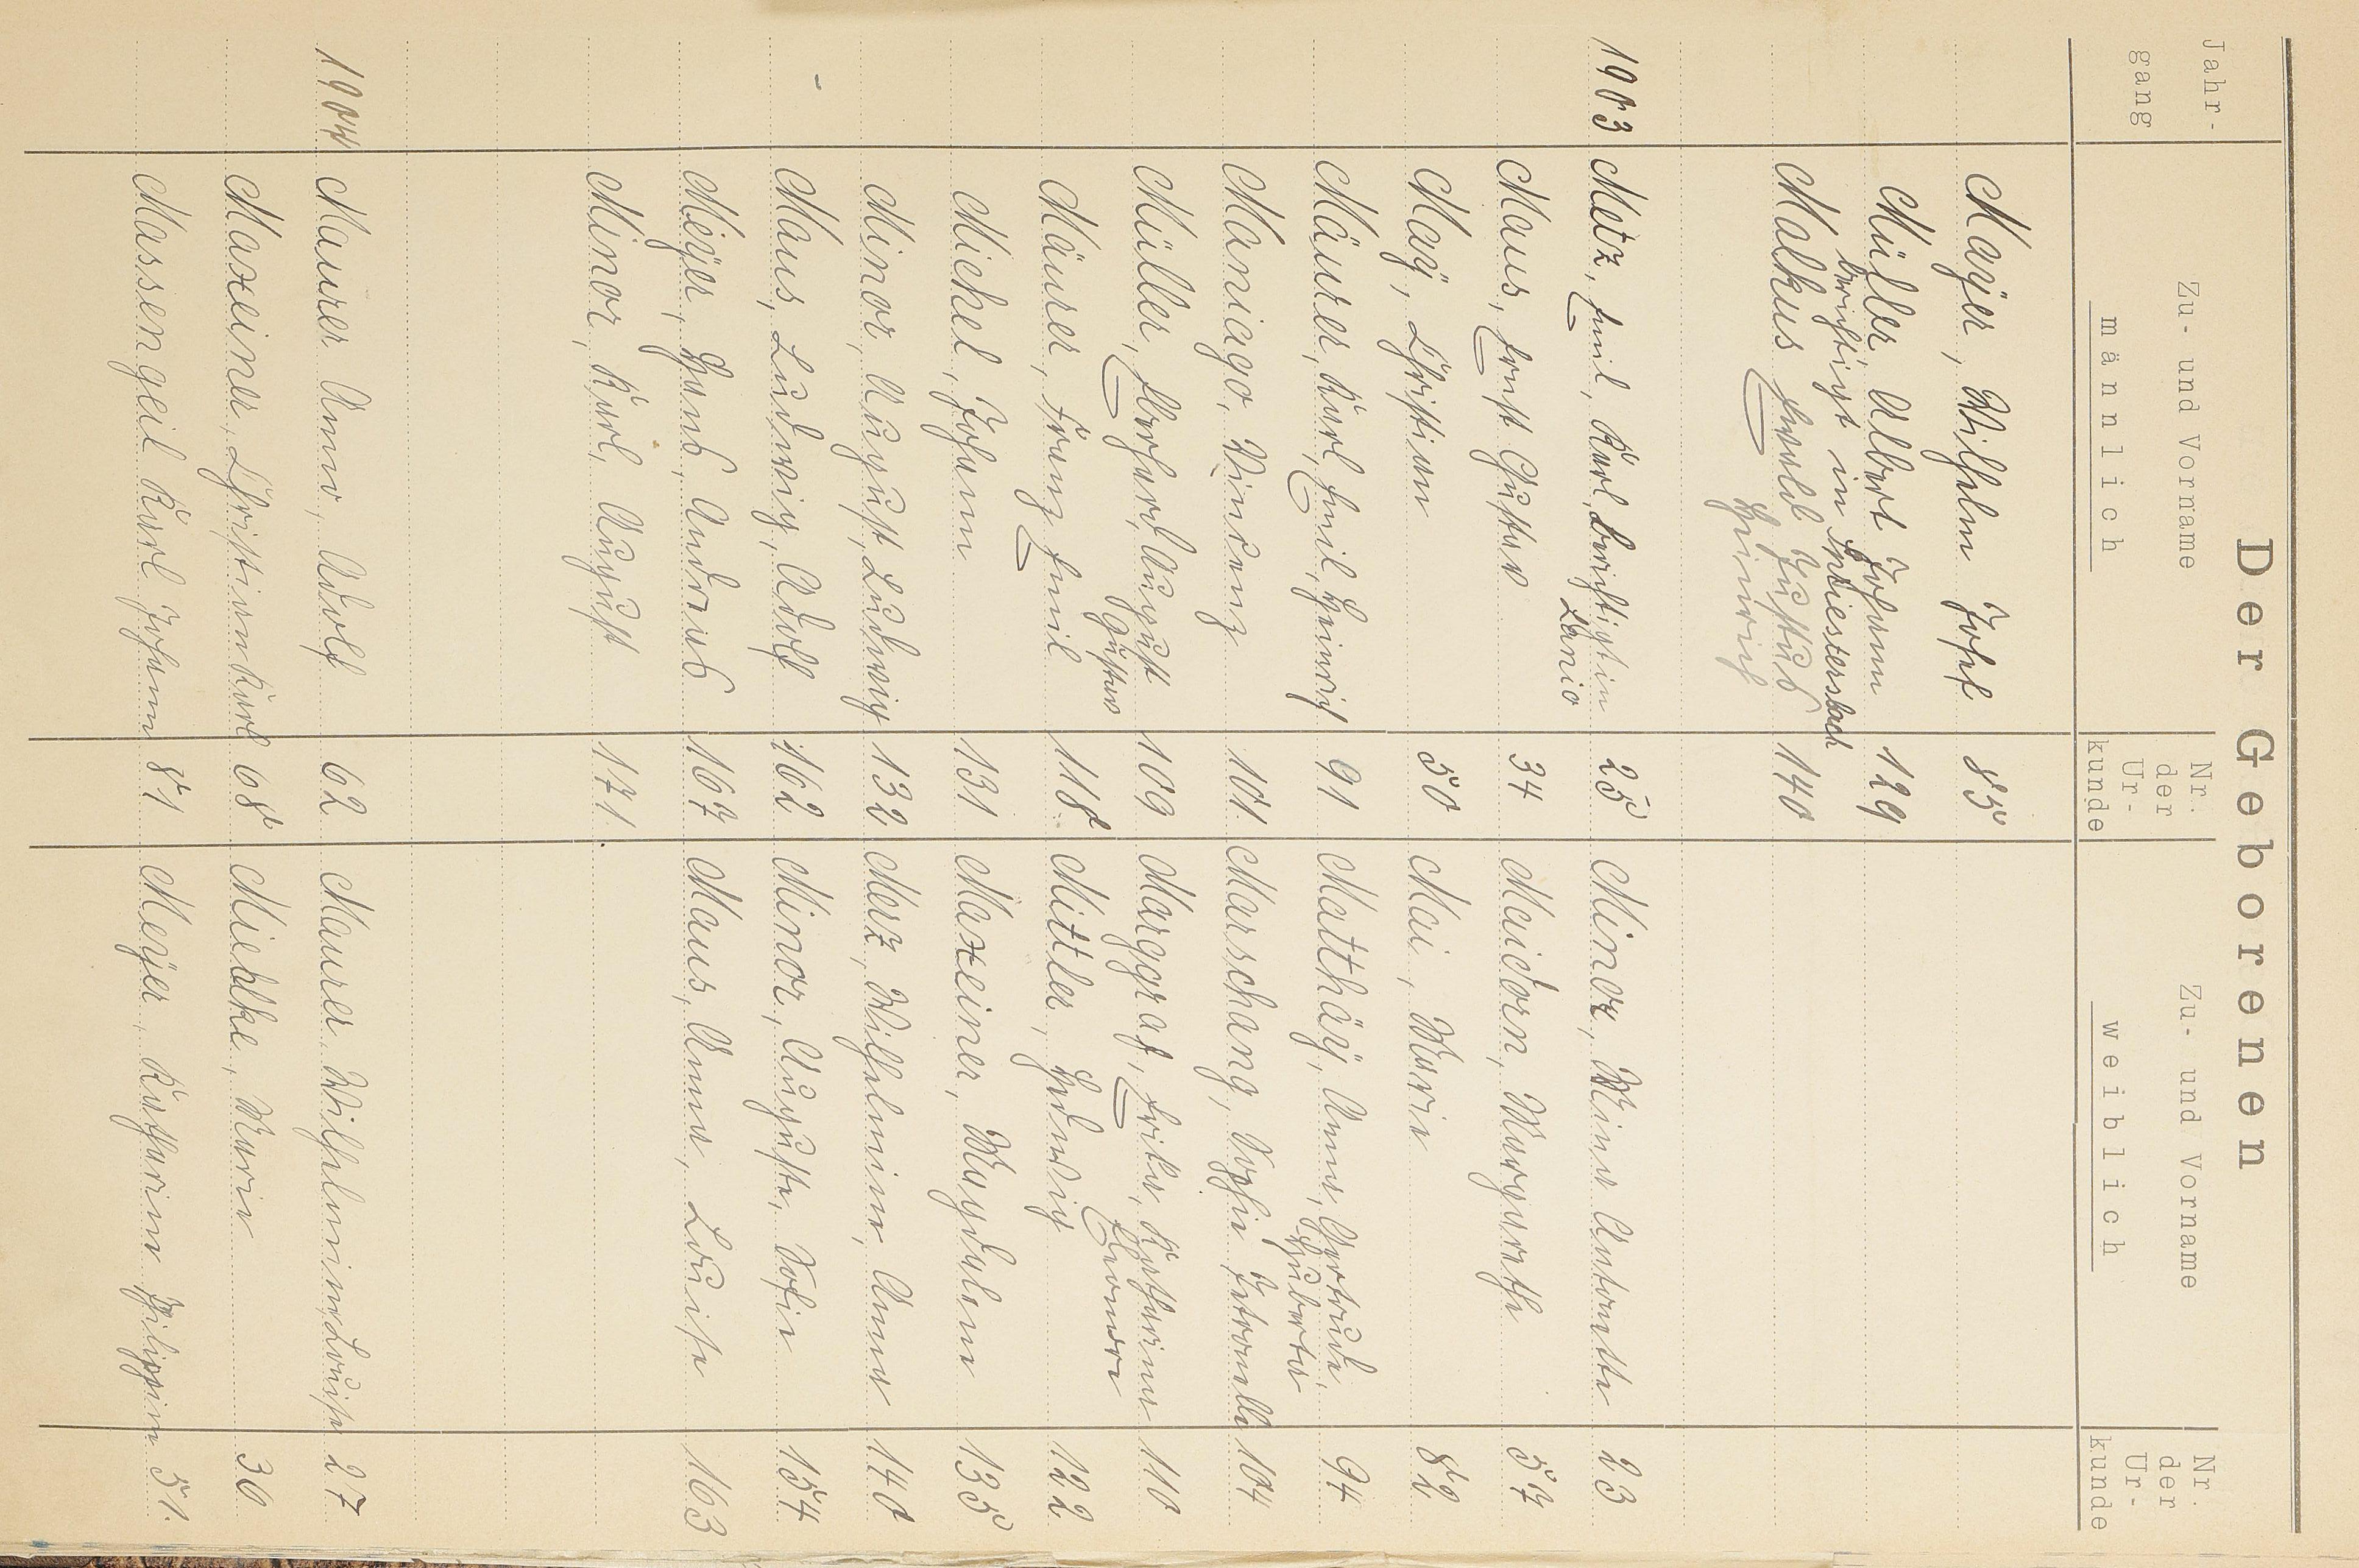 Der Geborenen
Jahr-
gang
Zu- und Vorname
männlich
Nr.
der
Ur-
kunde
Zu- und Vorname
weiblich
Nr.
der
Ur-
kunde
Mayer, Wilhelm Josef 85
Müller, Albert Johann 129
berichtigt in Miesterssbach
Malkus Ewald Justus 140
Heinrich
1903 Metz, Emil, Karl, berichtigt in 25 Minor, Mina Antonette 23
Lanio
Maus, Ernst Gustav 34 Maidorn, Margarethe 57
Maÿ, Christian 50 Mai, Maria 82
Mäurer, Karl, Emil, Heinrich 91 Matthäÿ, Anna, Gertrude, 94
Huberta
Maniago, Vincenz 101 Marschang, Sophie Petronella 104
Müller, Eberhard, August 109 Marggraf, Erika, Katharina 110
Gustav Eleonore
Mäurer, Franz Emil 118 Mitler, Hedwig 122
Michel, Johann 131 Maxeiner, Magdalena 135
Minor, August, Ludwig 132 Merz, Wilhelmine, Anna 140
Maus, Ludwig, Adolf 162 Minor, Auguste, Sofie 154
Meÿer, Hans, Andreas 167 Maus, Anna, Louise 163
Minor, Karl, August 171
1904 Maurer Anno, Adolf 62 Maurer Wilhelmine Louise 27
Maxeiner, Christian Karl 68 Miedtke, Maria 30
Massengeil Karl Johann 81 Meÿer, Katharina Philippine 51.